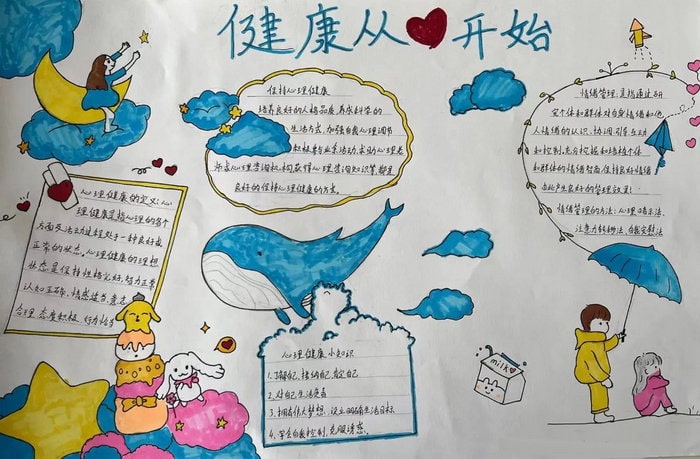 健康从❤开始
保持心理健康
培养良好的人格品质,养成科学的
生活方式,加强自我心理调节
积极参与业余活动,求助心理老
师或心理咨询机构,获得心理咨询知识等都是
良好的保持心理健康的方式。
情绪管理,是指通过研
究个体和群体对自身情绪和他
人情绪的认识、协调、引导、互动
和控制,充分挖掘和培植个体
和群体的情绪智商、保持良好情绪
由此产生良好的管理效果。
情绪管理的方法:心理暗示法、
注意力转移法、自我安慰法
心理健康的定义:心
理健康是指心理的各个
方面及活动过程处于一种良好或
正常的状态。心理健康的理想
状态是保持性格完好、智力正常
认知正确、情感适当、意志
合理、态度积极、行为恰当
心理健康小知识
1.了解自己、接纳自己、肯定自己
2.对自己生活负责
3.拥有伟大梦想,设立明确生活目标
4.学会自我控制,克服诱惑。
milk